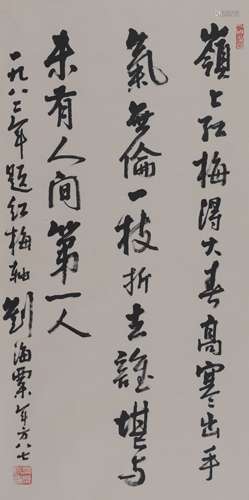 嶺上红梅得大春高寒出手
氣無倫一枝折去誰堪与
未有人间第一人
一九八二年题红梅軸劉海粟年方八七